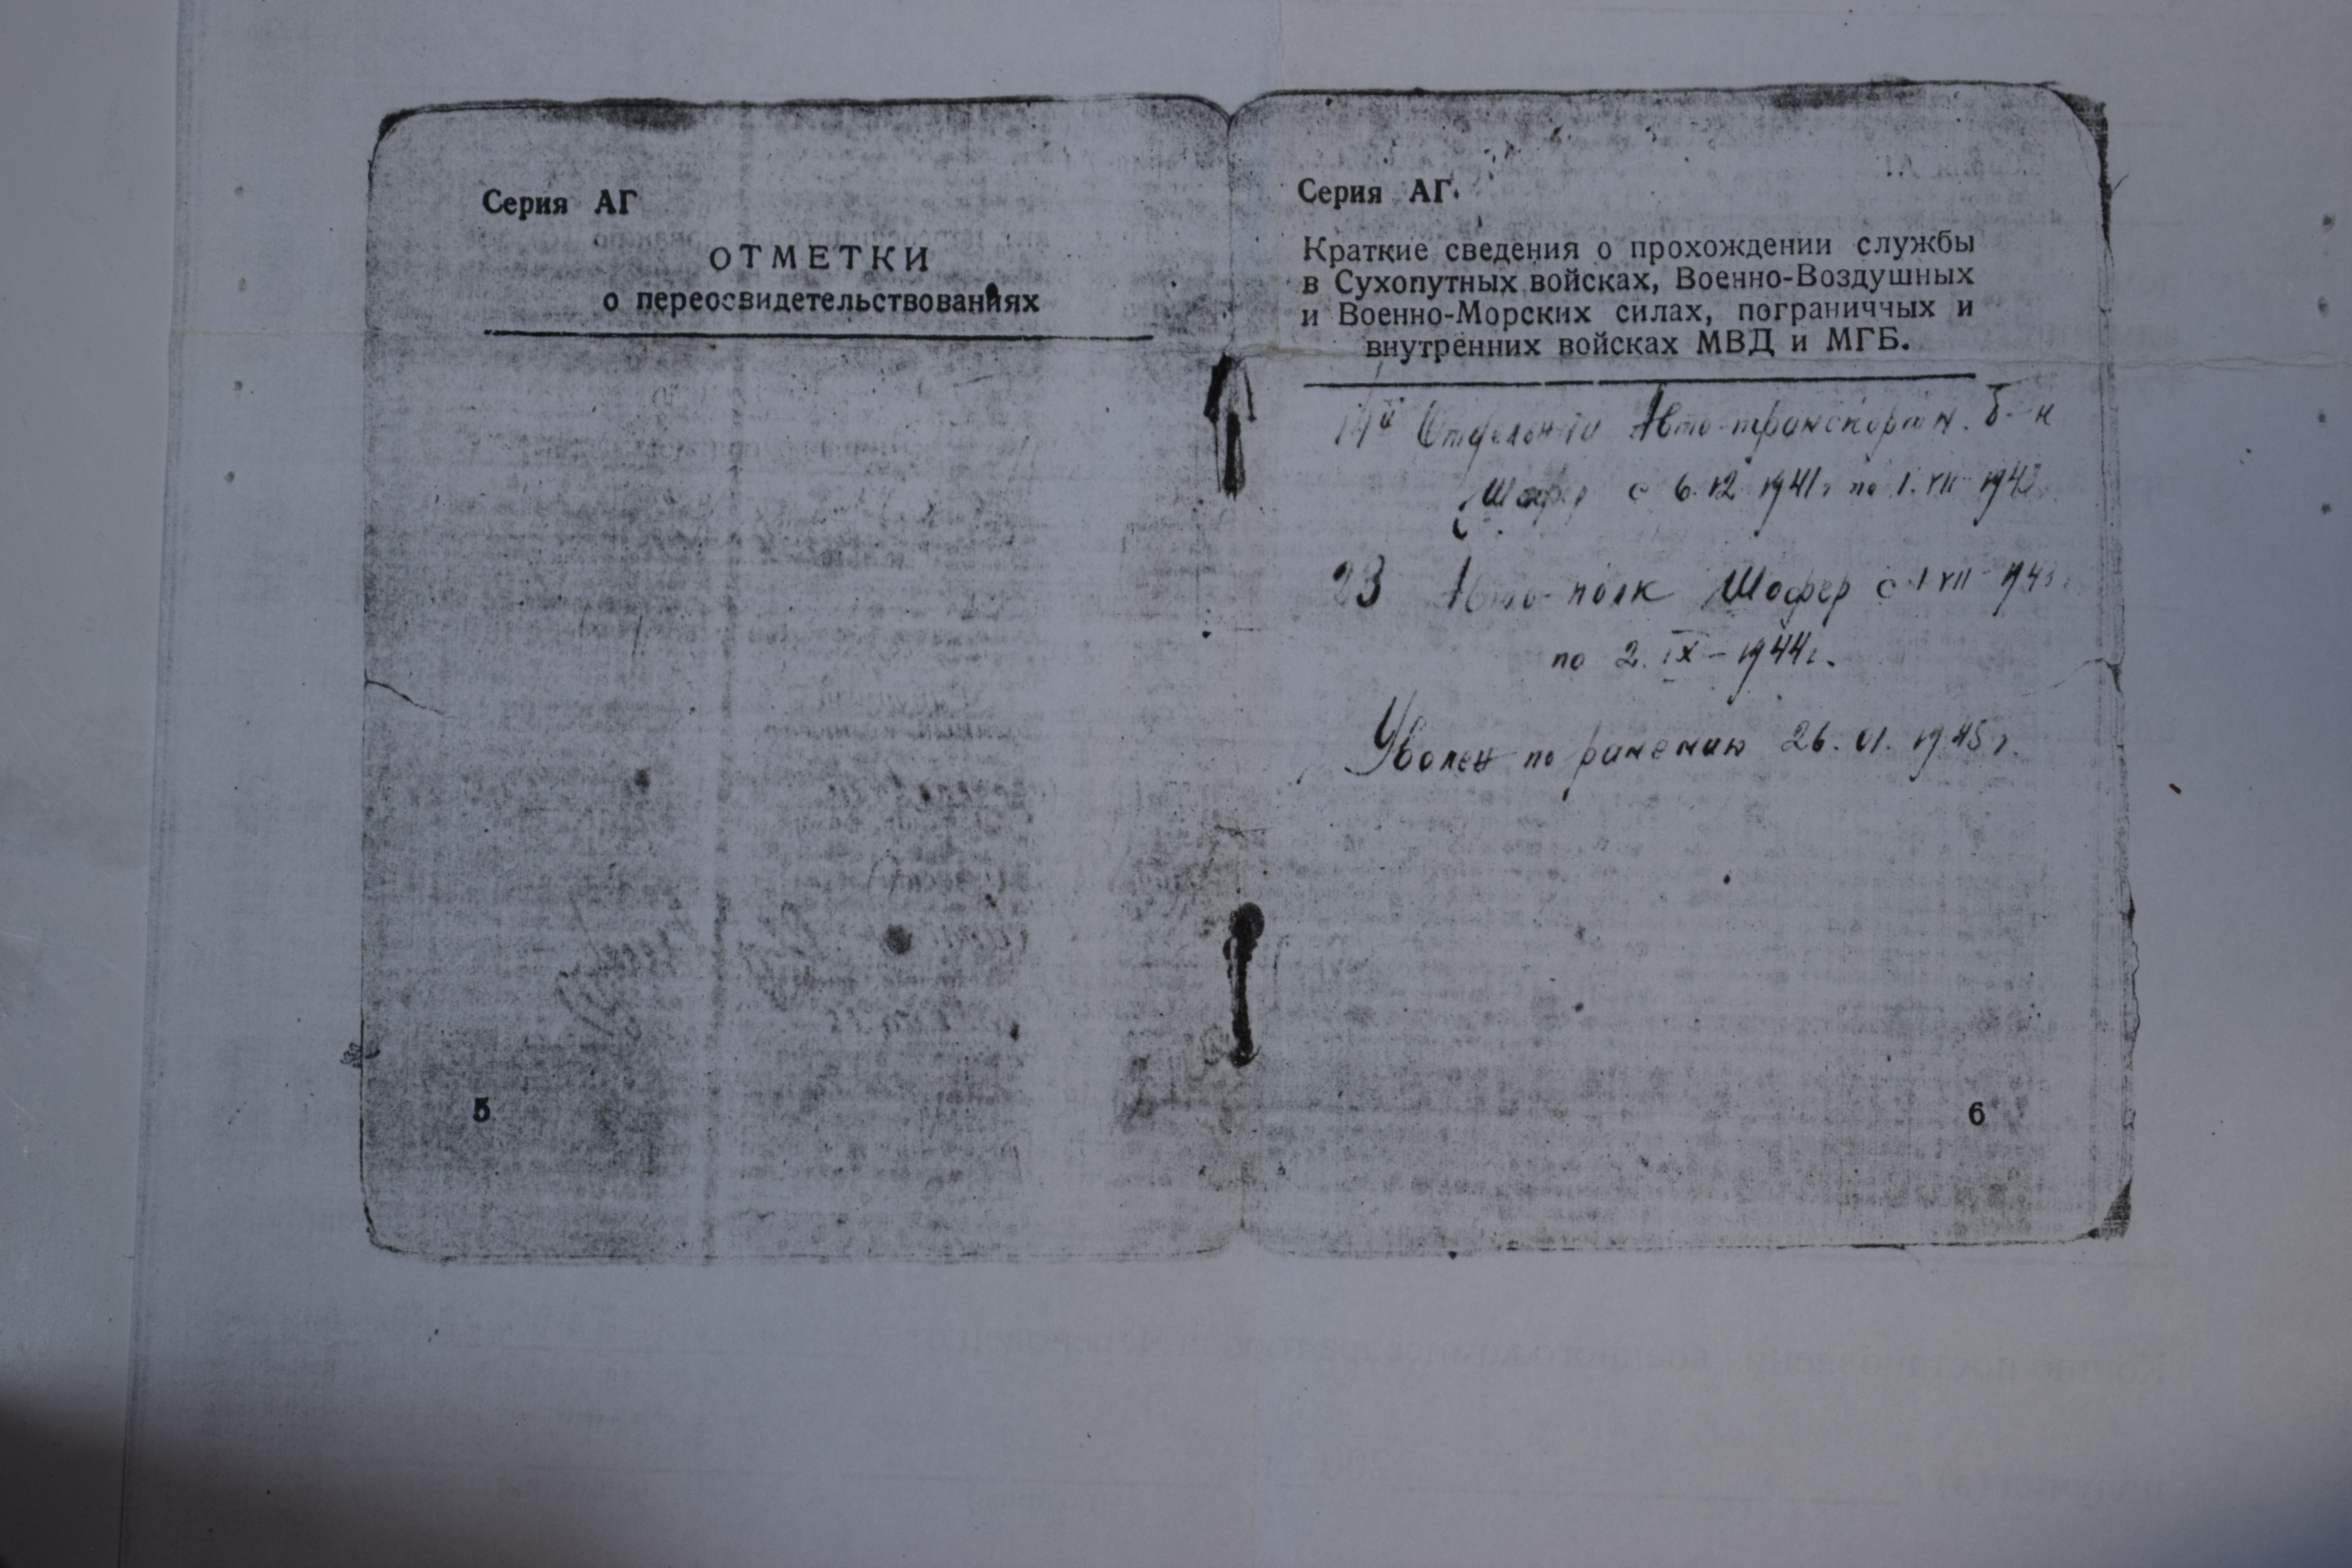 Серия АГ
ОТМЕТКИ
о переосвидетельствованиях
5
Серия АГ.
Краткие сведения о прохождении службы
в Сухопутных войсках, Военно-Воздушных
и Военно-Морских силах, пограничных и
внутренних войсках МВД и МГБ.
Авто-транспортн. б-н
Шофер с 6.12 1941г по 1.VII-1943г.
23 Авто-полк Шофер с 1 VII-1943г
по 2.IX-1944г.
Уволен по ранению 26.01.1945г.
6